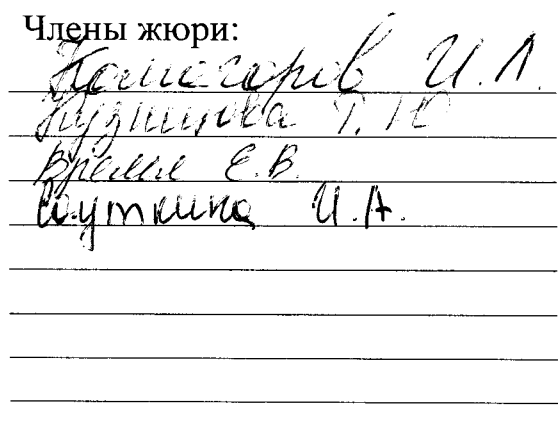 Члены жюри:
Комогоров И. Л.
Кузнецова Т. Ю
Время Е.В.
Уткина И.А.